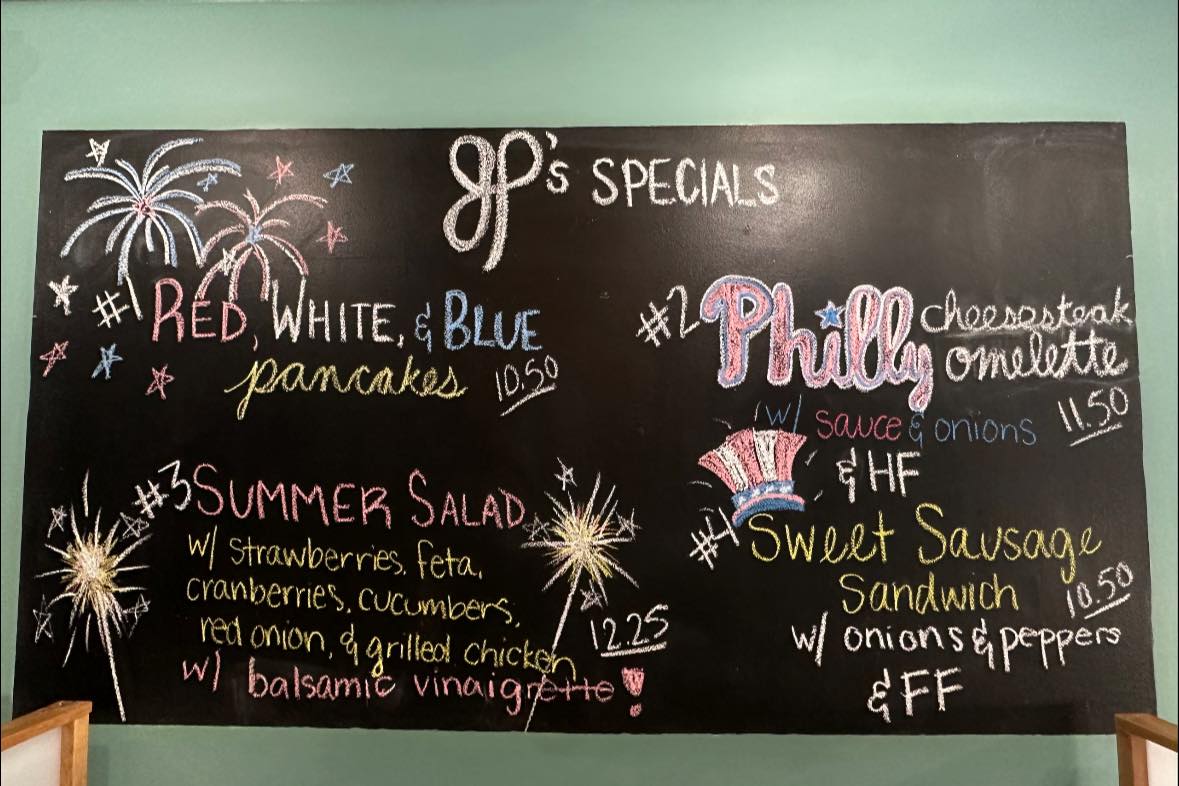 JP's SPECIALS
#1 RED, WHITE, & BLUE
pancakes 10.50
#2 Philly cheesesteak
omelette
w/ sauce & onions 11.50
& HF
#3 SUMMER SALAD
w/ strawberries, feta,
cranberries, cucumbers,
red onion, & grilled chicken 12.25
w/ balsamic vinaigrette!
#4 Sweet Sausage
Sandwich 10.50
w/ onions & peppers
& FF